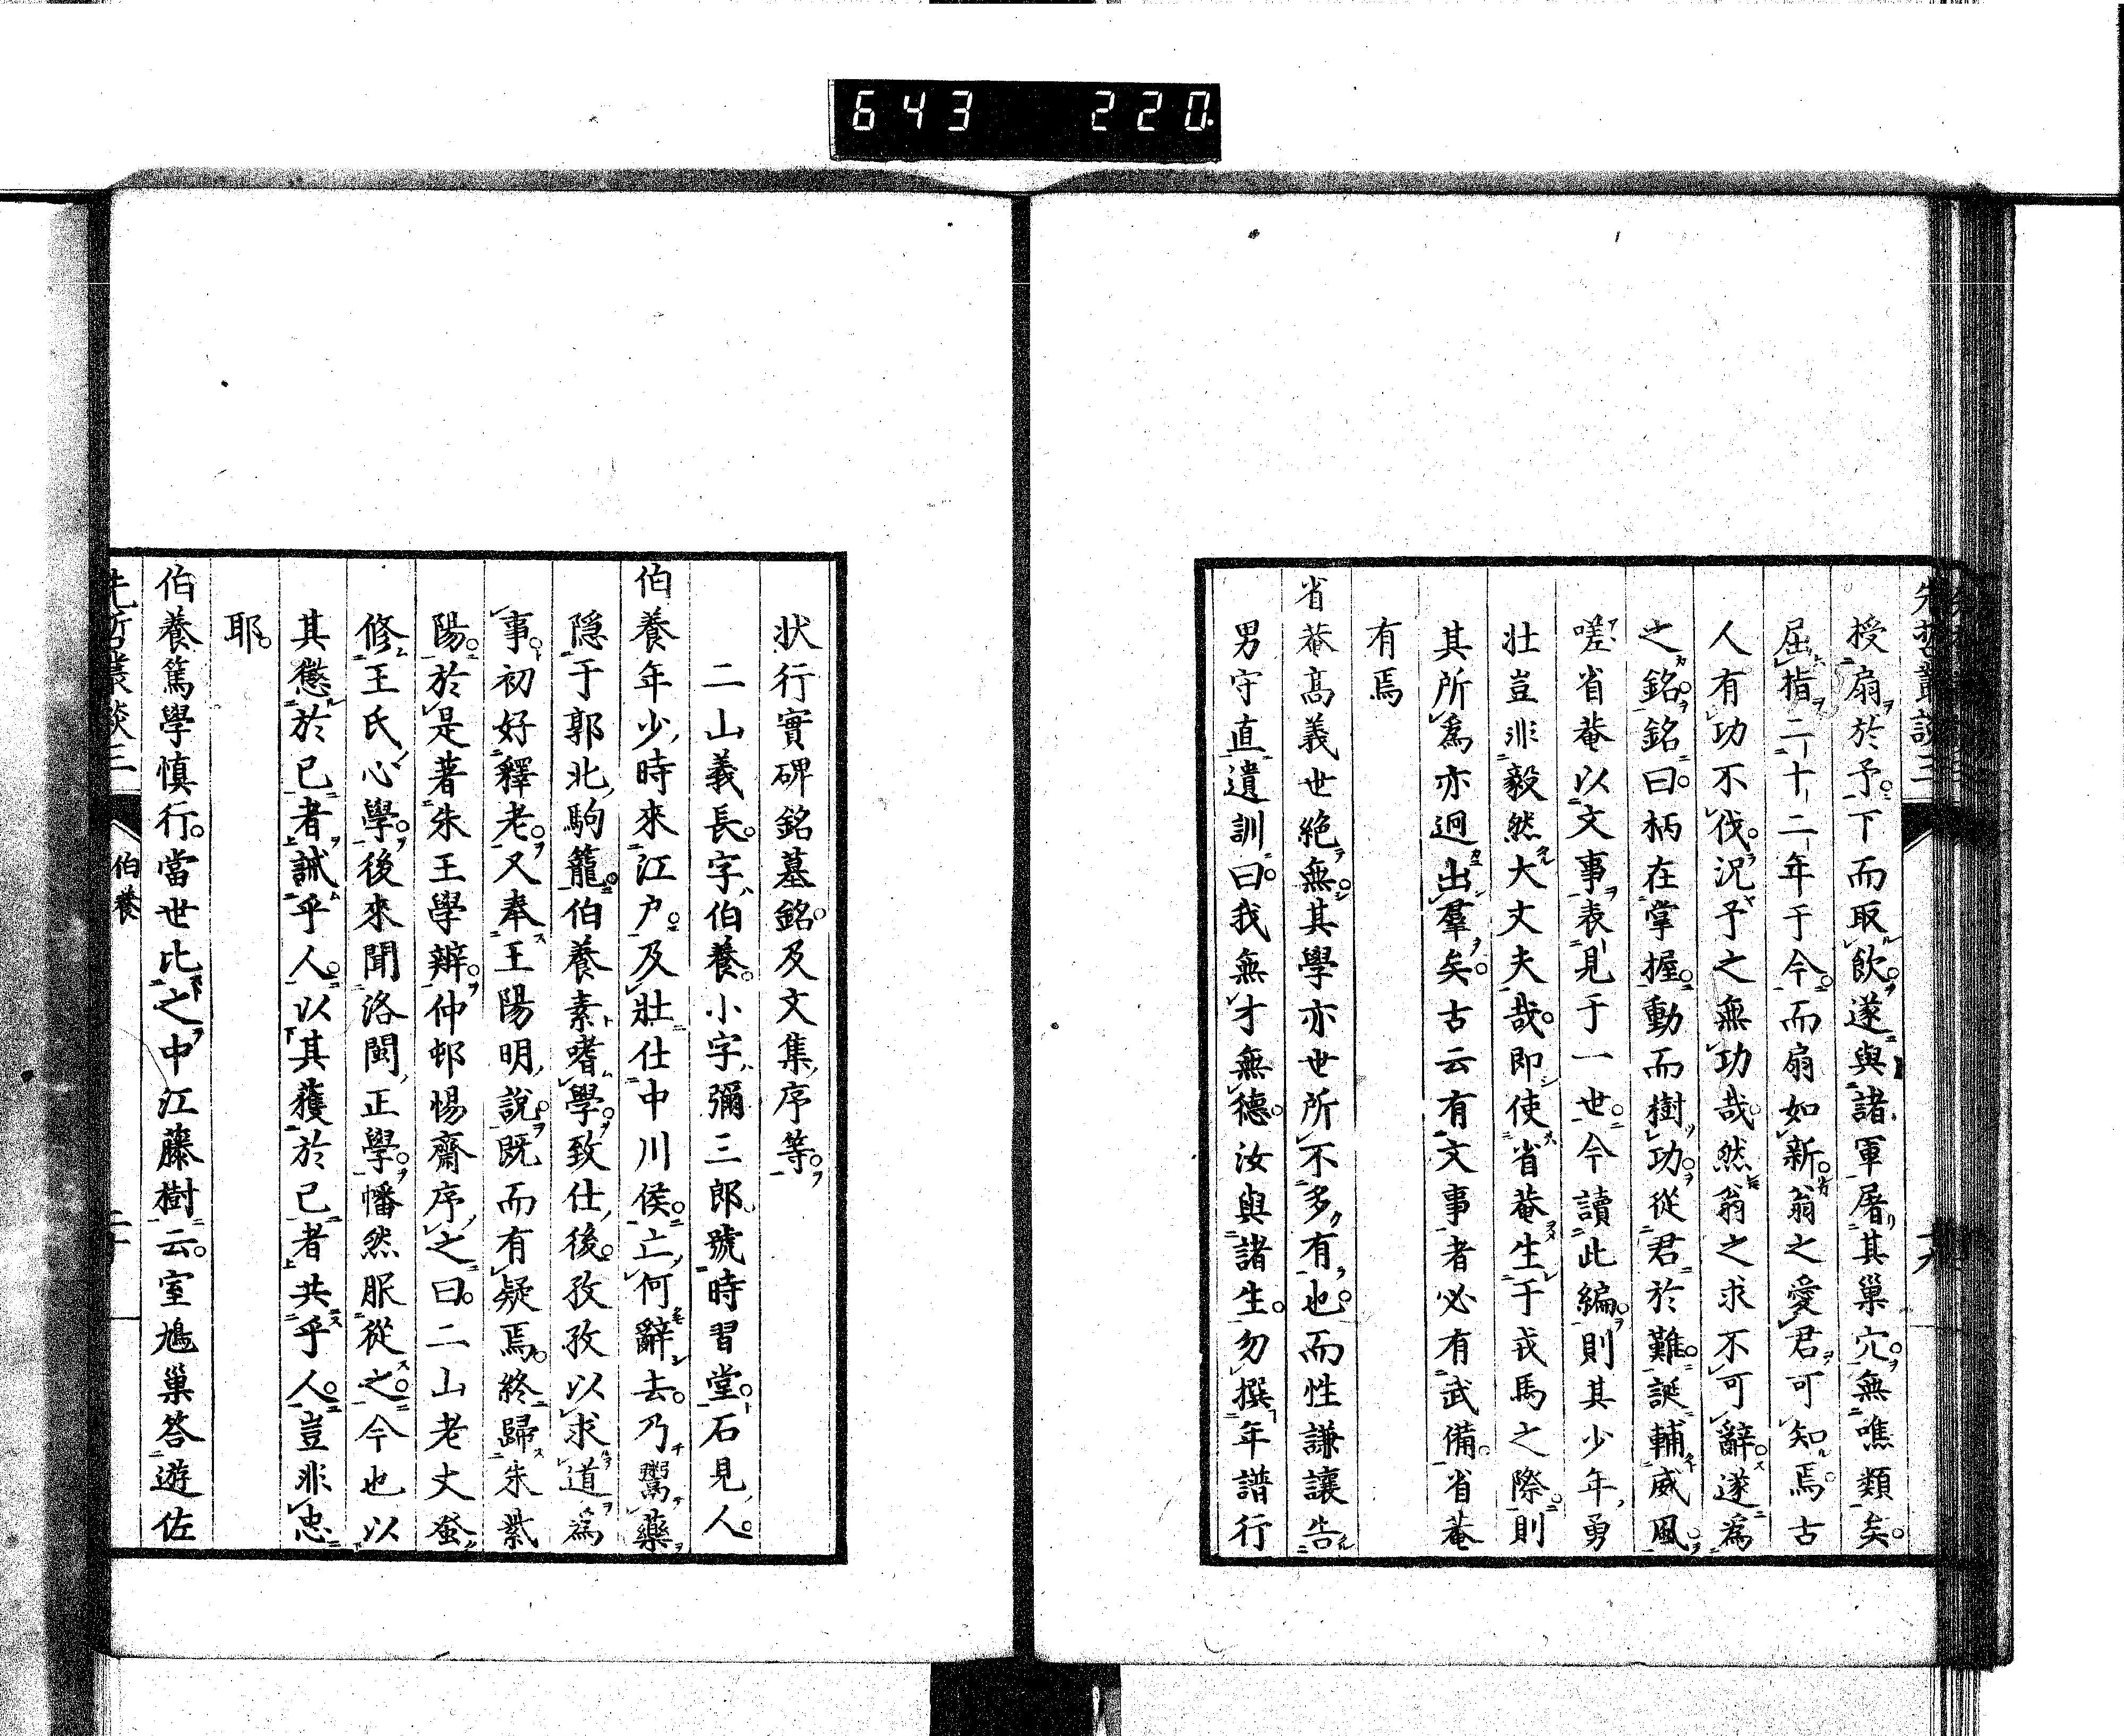 643 220
先哲叢談三
授扇於予下而取飲遂與諸軍屠其巢穴無噍類矣
屈指二十二年于今而扇如新翁之愛君可知焉古
人有功不伐況予之無功哉然翁之求不可辭遂爲
之銘銘曰柄在掌握動而樹功從君於難誕輔威風
嗟省菴以文事表見于一世今讀此編則其少年勇
壯豈非毅然大丈夫哉即使省菴生于戎馬之際則
其所爲亦迥出羣矣古云有文事者必有武備省菴
有焉
省菴高義世絶無其學亦世所不多有也而性謙讓告
男守直遺訓曰我無才無德汝與諸生勿撰年譜行
狀行實碑銘墓銘及文集序等
二山義長字伯養小字彌三郎號時習堂石見人
伯養年少時來江戸及壯仕中川侯亡何辭去乃鬻藥
隱于郭北駒籠伯養素嗜學致仕後孜孜以求道爲
事初好釋老又奉王陽明說既而有疑焉終歸朱紫
陽於是著朱王學辨仲邨惕齋序之曰二山老丈蚤
修王氏心學後來聞洛閩正學幡然服從之今也以
其懲於已者誡乎人以其獲於己者共乎人豈非忠
耶
伯養篤學慎行當世比之中江藤樹云室鳩巢答遊佐
先哲叢談三
伯養